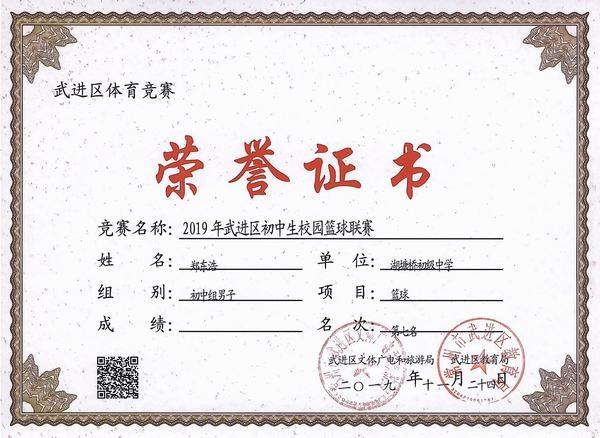 武进区体育竞赛
荣誉证书
竞赛名称：2019年武进区初中生校园篮球联赛
姓名：郑东浩 单位：湖塘桥初级中学
组别：初中组男子 项目：篮球
成绩： 名次：第七名
武进区文体广电和旅游局 武进区教育局
二〇一九年十一月二十四日
常州市武进区教育局